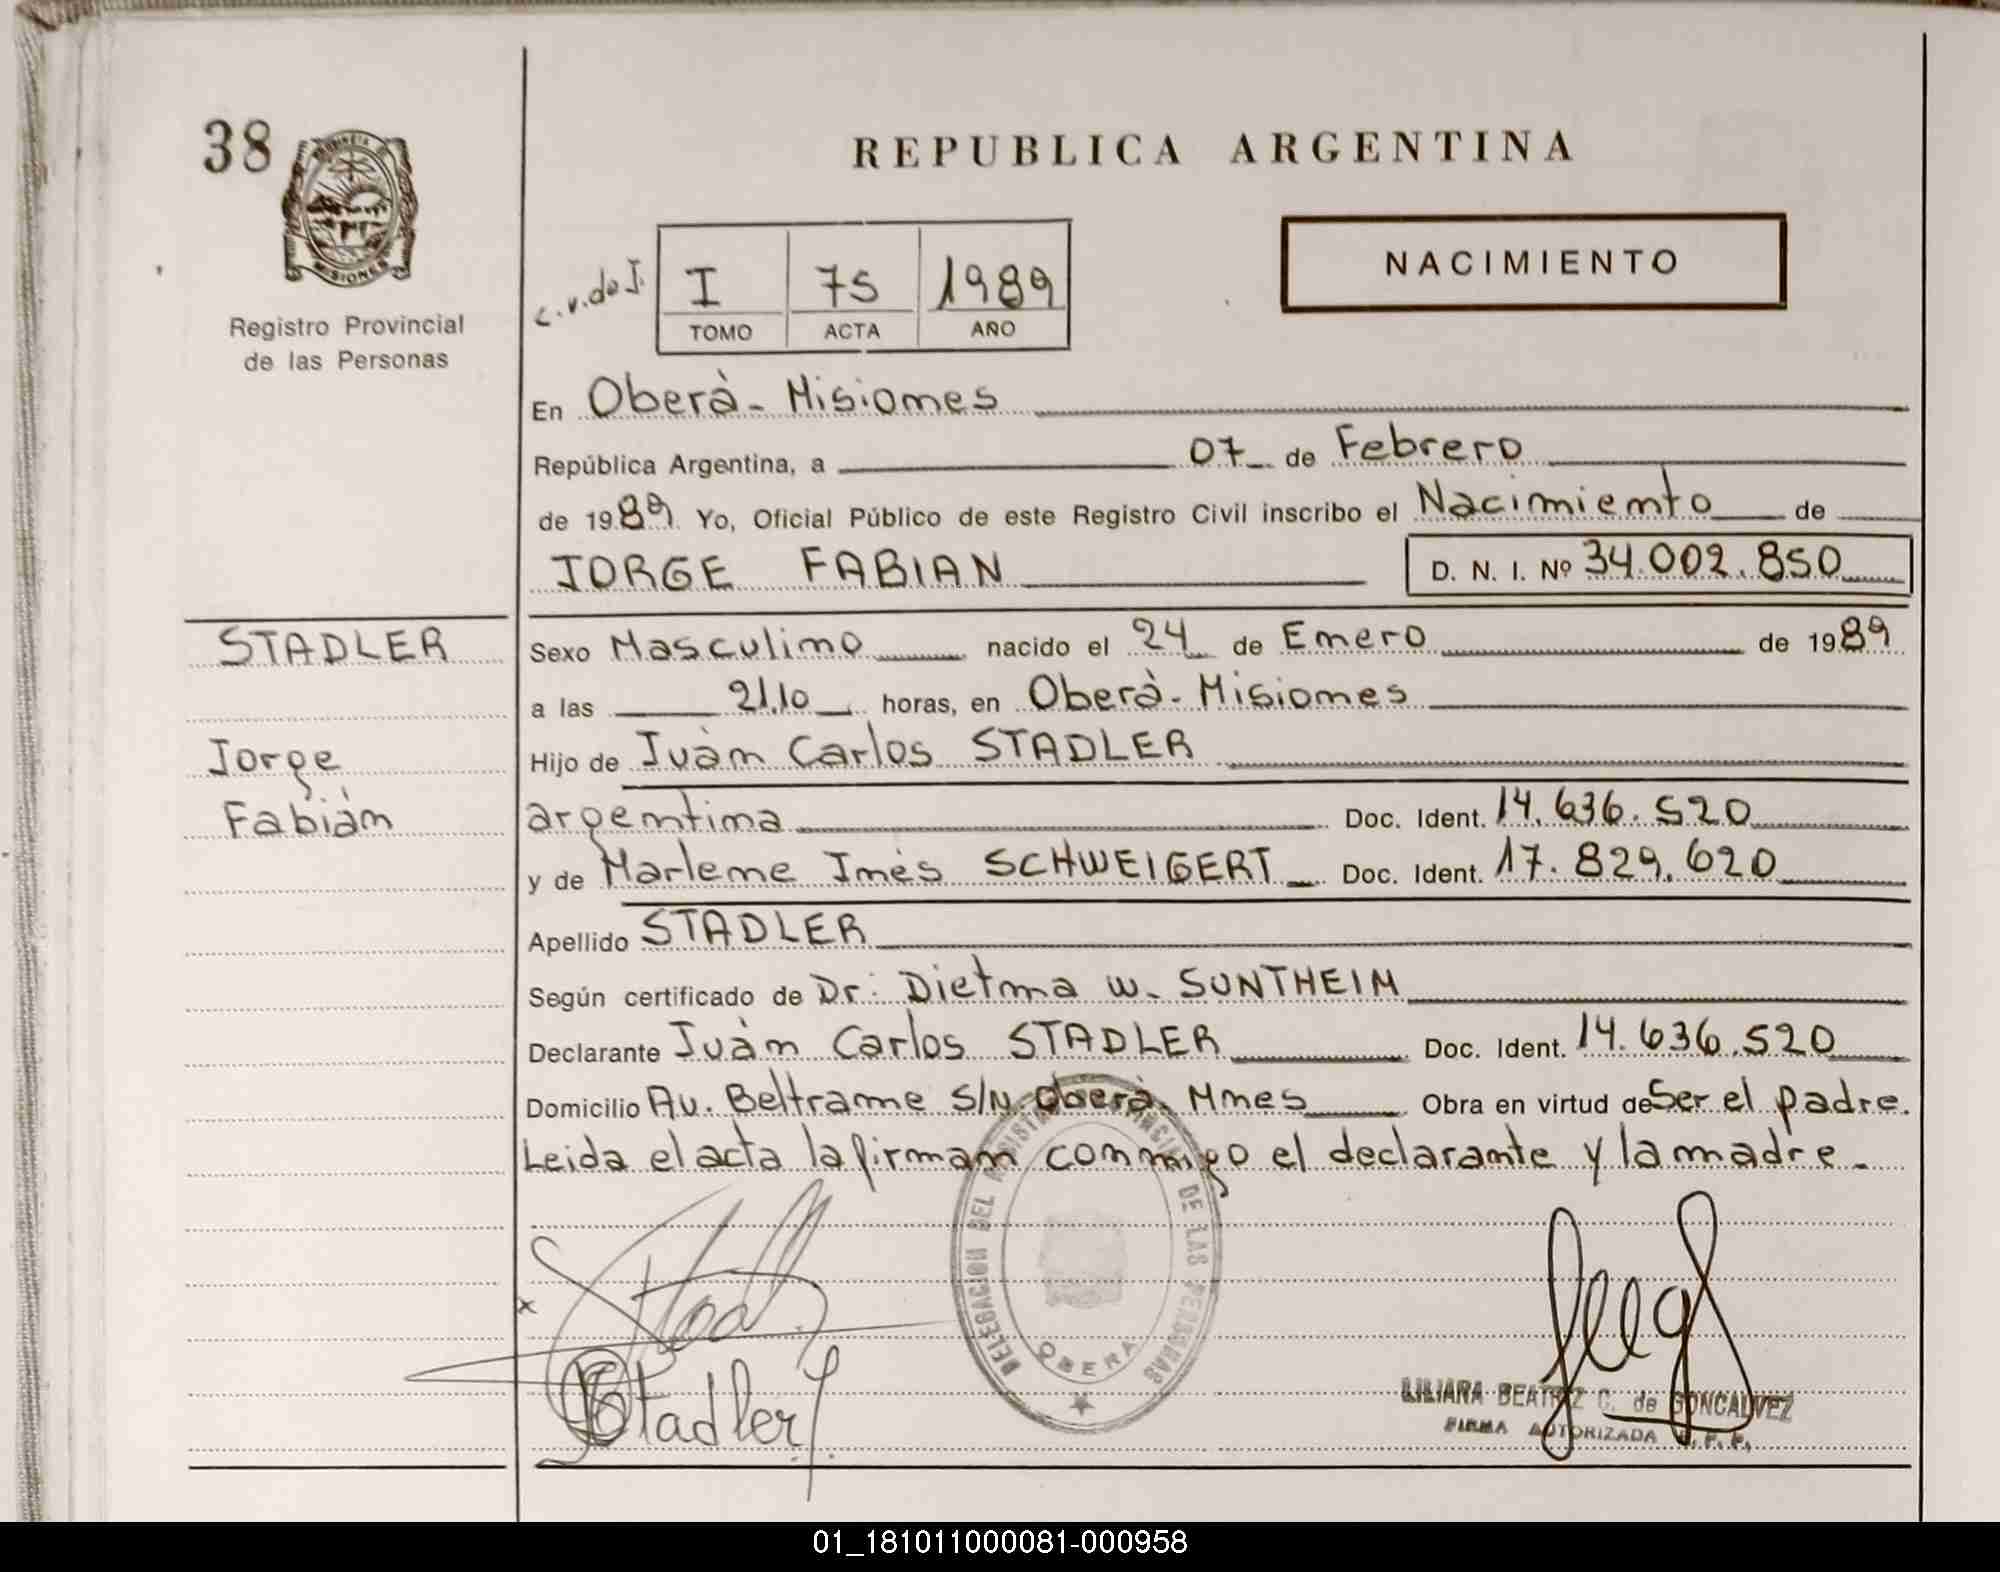 38
REPUBLICA ARGENTINA
PROVINCIA MISIONES
Registro Provincial
de las Personas
c.v.do I.
I 75 1989
TOMO ACTA AÑO
NACIMIENTO
En Oberà - Misiones
República Argentina, a 07 de Febrero
de 1989 Yo, Oficial Público de este Registro Civil inscribo el Nacimiento de
JORGE FABIAN D. N. I. Nº 34.002.850
STADLER
Jorge
Fabián
Sexo Masculino nacido el 24 de Enero de 1989
a las 21,10 horas, en Oberà - Misiones
Hijo de Juàn Carlos STADLER
argentina Doc. Ident. 14.636.520
y de Marlene Inès SCHWEIGERT Doc. Ident. 17.829.620
Apellido STADLER
Según certificado de Dr: Dietma W. SUNTHEIM
Declarante Juàn Carlos STADLER Doc. Ident. 14.636.520
Domicilio Av. Beltrame S/N. Oberà. Mnes Obra en virtud de Ser el padre.
Leida el acta la firman conmigo el declarante y la madre.
DELEGACION DEL REGISTRO PROVINCIAL DE LAS PERSONAS
OBERA
Stadler
LILIANA BEATRIZ C. de GONCALVEZ
FIRMA AUTORIZADA R. P. P.
01_181011000081-000958